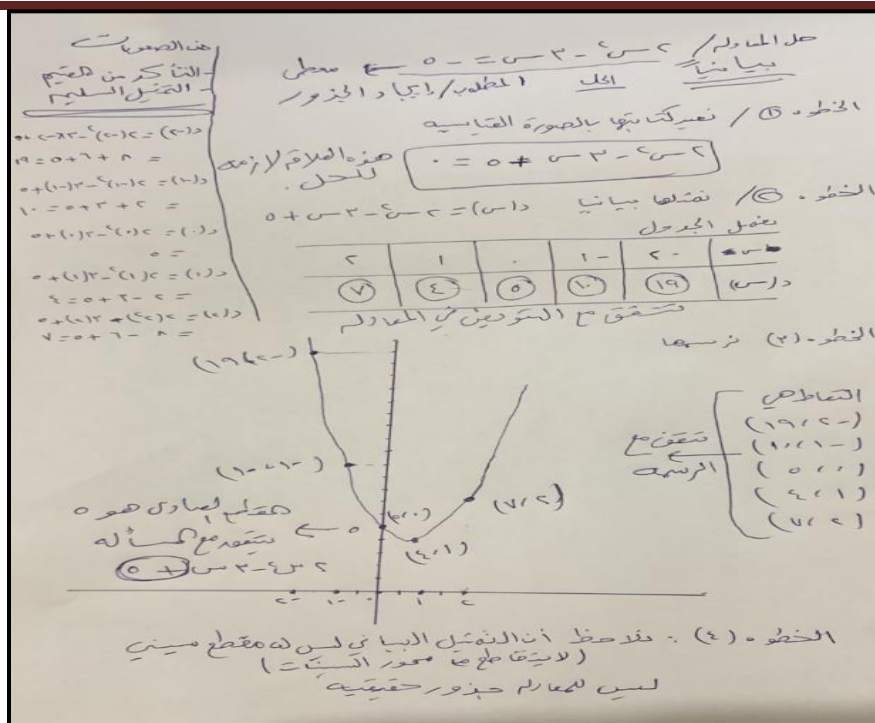 حل المعادلة / ٢س٢ - ٣س = -٥ ← معطى
بيانياً
الحل المطلوب / إيجاد الجذور
الخطوة ① / نعيد كتابتها بالصورة القياسية
٢س٢ - ٣س + ٥ = ٠
هذه العلاقة لازمة للحل.
الخطوة ② / نمثلها بيانيا د(س) = ٢س٢ - ٣س + ٥
نعمل الجدول
س -٢ -١ ٠ ١ ٢
د(س) ١٩ ١٠ ٥ ٤ ٧
تتفق مع التعويض في المعادلة
الخطوة (٣) نرسمها
النقاط هي
(-٢، ١٩)
(-١، ١٠)
(٠، ٥)
(١، ٤)
(٢، ٧)
تتفق مع
الرسمة
من الصعوبات
- التأكد من القيم
- التمثيل السليم
د(-٢) = ٢(-٢)٢ - ٣(-٢) + ٥
= ٨ + ٦ + ٥ = ١٩
د(-١) = ٢(-١)٢ - ٣(-١) + ٥
= ٢ + ٣ + ٥ = ١٠
د(٠) = ٢(٠)٢ - ٣(٠) + ٥
= ٥
د(١) = ٢(١)٢ - ٣(١) + ٥
= ٢ - ٣ + ٥ = ٤
د(٢) = ٢(٢)٢ + ٣(٢) + ٥
= ٨ - ٦ + ٥ = ٧
(-٢، ١٩)
(-١، ١٠)
(٠، ٥)
(١، ٤)
(٢، ٧)
المقطع الصادي هو ٥ ← ٥
يتفق مع المسألة
٢س٢ - ٣س + ٥
-٢ -١ ١ ٢
الخطوة (٤): نلاحظ أن التمثيل البياني ليس له مقطع سيني
(لا يتقاطع مع محور السينات)
ليس للمعادلة جذور حقيقية